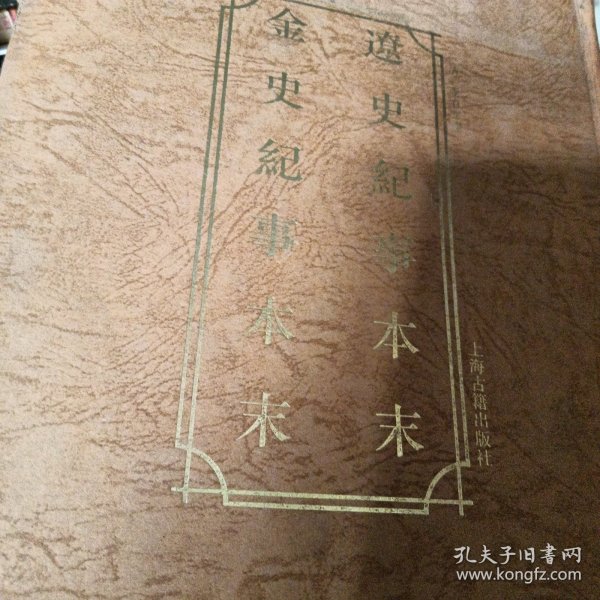 遼史紀事本末
金史紀事本末
上海古籍出版社
孔夫子旧書网
www.kongfz.com